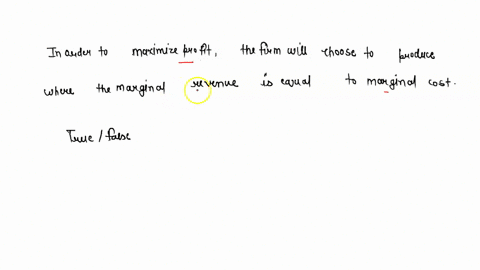 In order to maximize profit, the firm will choose to produce
where the marginal revenue is equal to marginal cost.
True / false